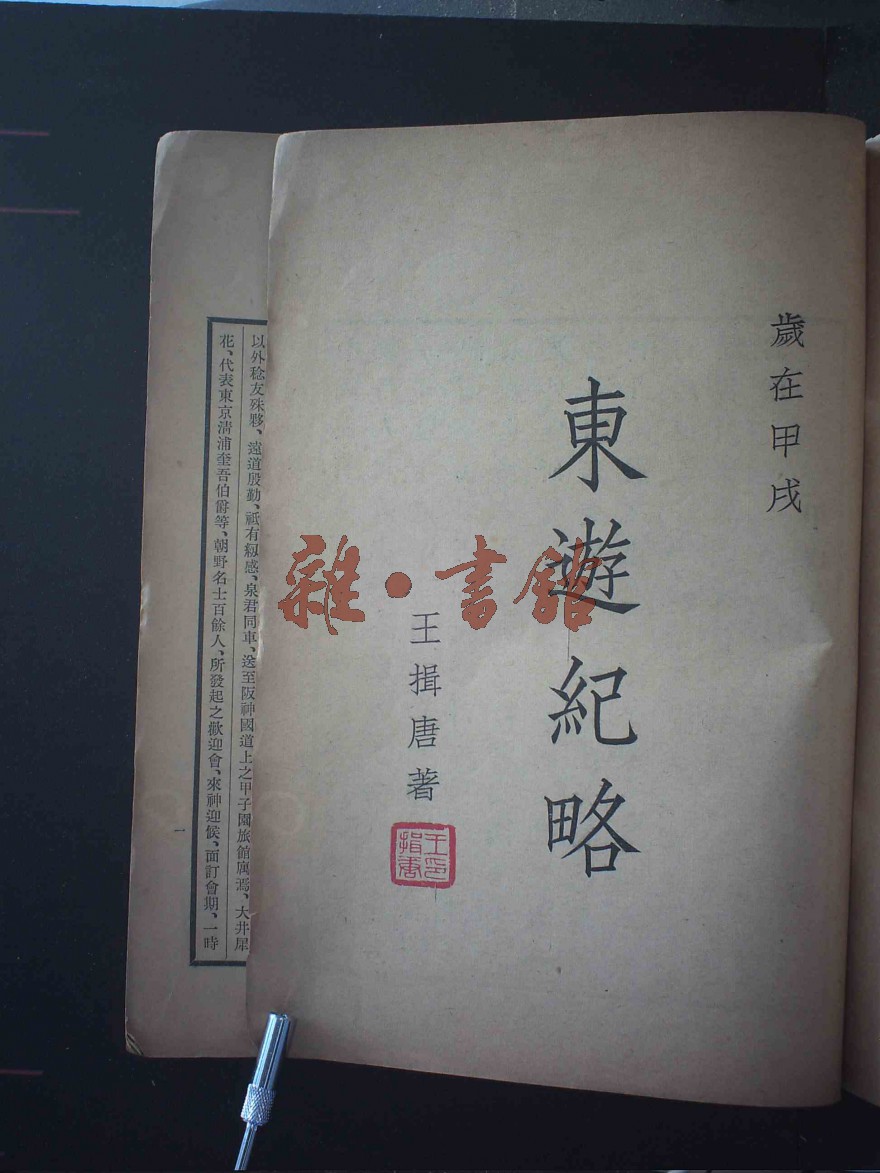 歲在甲戌
東遊紀略
王揖唐著
王揖唐印
雜·書館
以外稔友殊夥、遠道殷勤、祇有紉感、泉君同車、送至阪神國道上之甲子園旅館寓焉、大井犀
花、代表東京清浦奎吾伯爵等、朝野名士百餘人、所發起之歡迎會、來神迎候、面訂會期、一時
一